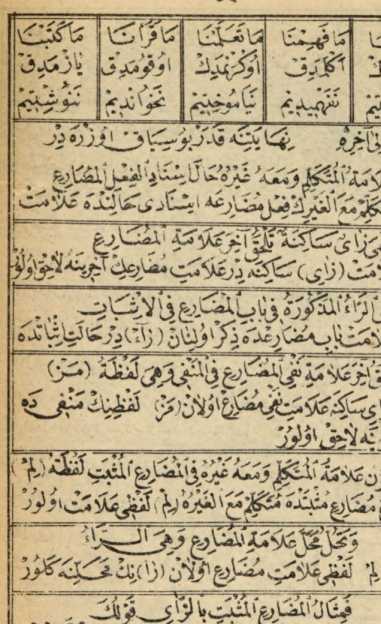 ما فهمنا ما تعلمنا ما قرأنا ما كتبنا
اكلمدق اوكرنمدك اوقومدق يازمدق
نفهميديم نياموختيم نخوانديم ننوشتيم
الى آخره نهايتنه قدر بو سياق اوزره در
لامة المتكلم ومعه غيره حال اسناد الفعل المضارع
متكلم مع الغيرك فعل مضارعه اسنادى حالنده علامت
هى زاى ساكنة تلحق آخر علامة المضارع
(زاى) ساكنه در علامت مضارعك آخرينه لاحق اولور
الراء المذكورة فى باب المضارع فى الاثبات
علامت باب مضارعده ذكر اولنان (راء) در حالت اثباتده
آخر علامة نفى المضارع فى المنفى وهى لفظة (مز)
زاى ساكنه علامت نفى مضارع اولان (مز) لفظنك منفى ده
لاحق اولور
ان علامة المتكلم ومعه غيره فى المضارع المثبت لفظة (لم)
مضارع مثبتده متكلم مع الغيره (لم) لفظى علامت اولور
وتحل محل علامة المضارع وهى الراء
لم لفظى علامت مضارع اولان (را) نك محلينه كلور
فمثال المضارع المثبت بالزاى قولك